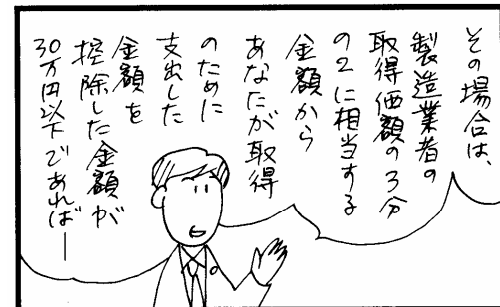 その場合は、
製造業者の
取得価額の3分
の2に相当する
金額から
あなたが取得
のために
支出した
金額を
控除した金額が
30万円以下であれば―